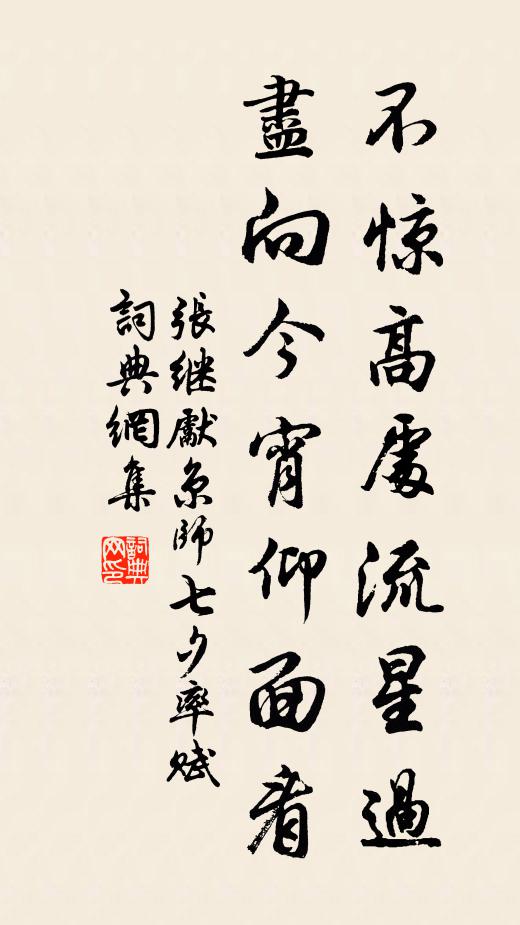 不惊高處流星過
盡向今宵仰面看
張继獻京師七夕率赋
詞典網集
詞典
网印